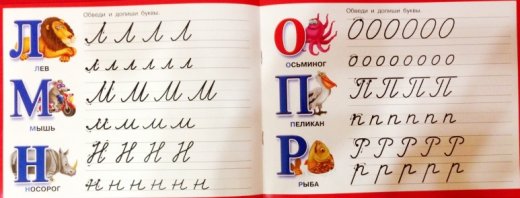 Обведи и допиши буквы.
Л Л Л Л Л
ЛЕВ
л л л л л л
М М М М М М
МЫШЬ
м м м м м
Н Н Н Н Н
НОСОРОГ
н н н н н н
Обведи и допиши буквы.
О О О О О О О О
ОСЬМИНОГ
о о о о о о о о
П П П П П П
ПЕЛИКАН
п п п п п п
Р Р Р Р Р Р
РЫБА
р р р р р р